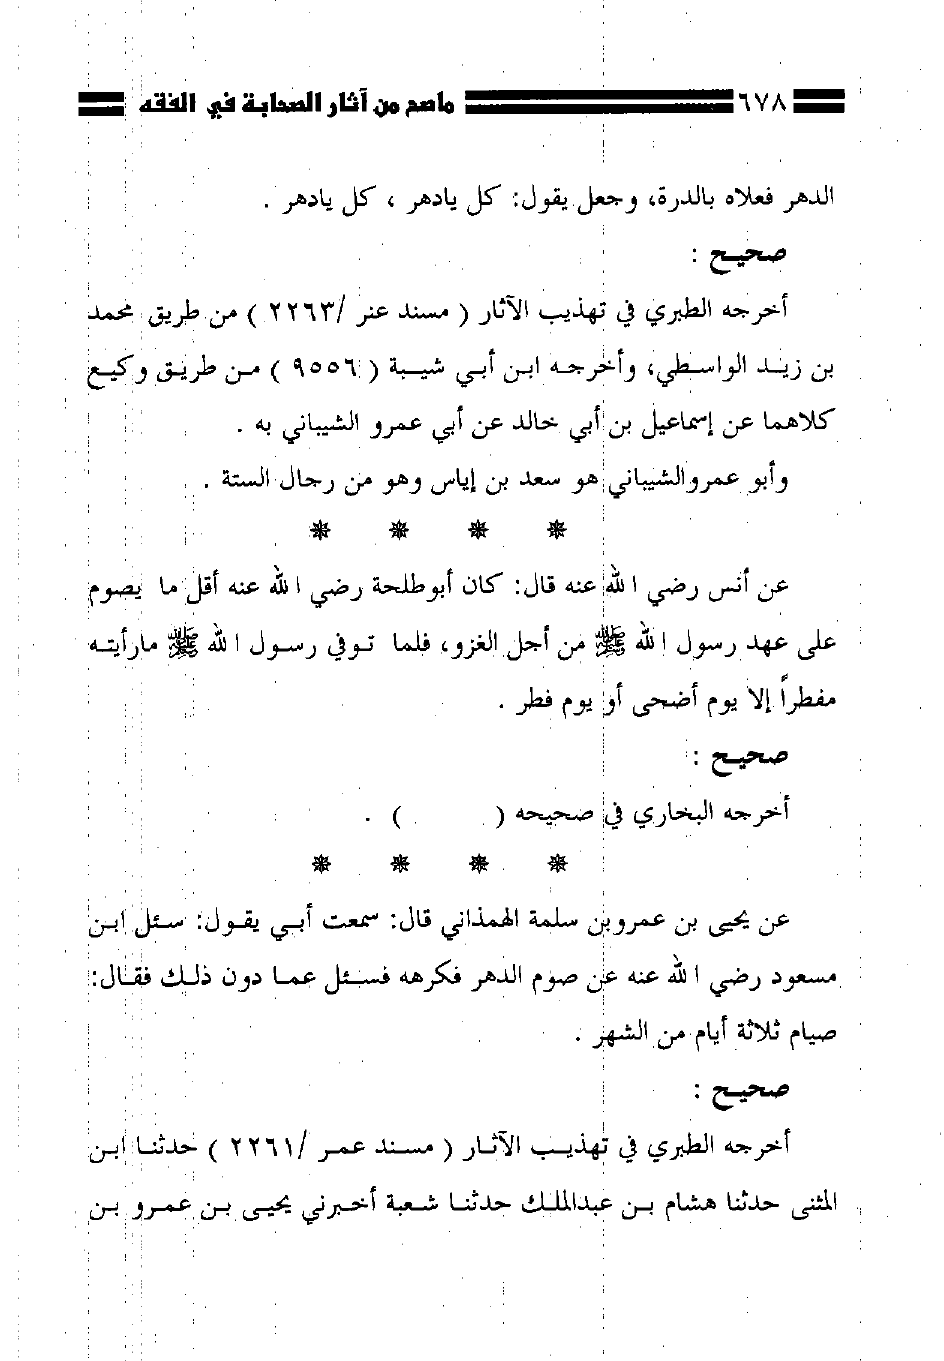 ٦٧٨ ماصح من آثار الصحابة في الفقه
الدهر فعلاه بالدرة، وجعل يقول: كل يادهر ، كل يادهر .
صحيح :
أخرجه الطبري في تهذيب الآثار ( مسند عنر /٢٢٦٣ ) من طريق محمد
بن زيد الواسطي، وأخرجه ابن أبي شيبة ( ٩٥٥٦ ) من طريق وكيع
كلاهما عن إسماعيل بن أبي خالد عن أبي عمرو الشيباني به .
وأبو عمروالشيباني هو سعد بن إياس وهو من رجال الستة .
عن أنس رضي الله عنه قال: كان أبوطلحة رضي الله عنه أقل ما يصوم
على عهد رسول الله ﷺ من أجل الغزو، فلما توفي رسول الله ﷺ مارأيته
مفطراً إلا يوم أضحى أو يوم فطر .
صحيح :
أخرجه البخاري في صحيحه ( ) .
عن يحيى بن عمروبن سلمة الهمذاني قال: سمعت أبي يقول: سئل ابن
مسعود رضي الله عنه عن صوم الدهر فكرهه فسئل عما دون ذلك فقال:
صيام ثلاثة أيام من الشهر .
صحيح :
أخرجه الطبري في تهذيب الآثار ( مسند عمر /٢٢٦١ ) حدثنا ابن
المثنى حدثنا هشام بن عبدالملك حدثنا شعبة أخبرني يحيى بن عمرو بن